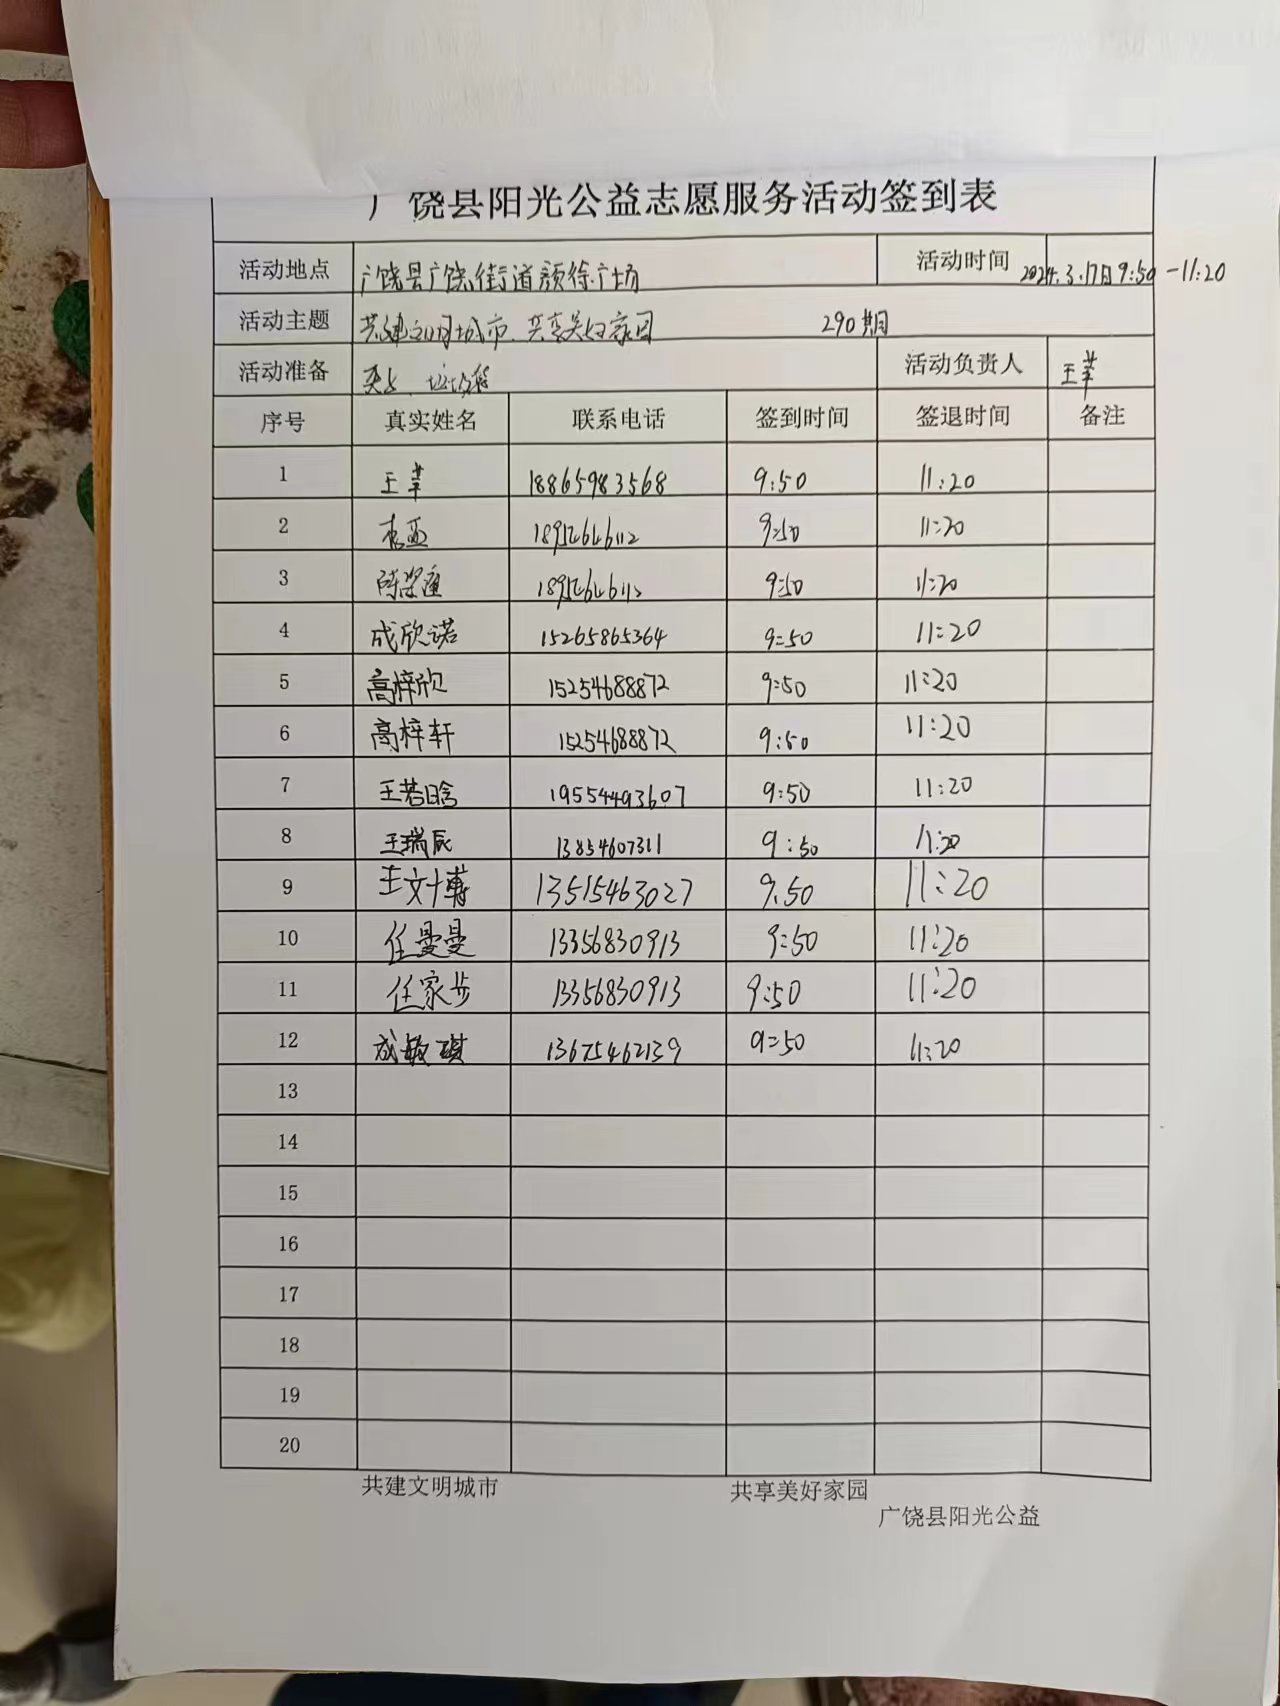 广饶县阳光公益志愿服务活动签到表
活动地点 广饶县广饶街道颜徐广场 活动时间 2024.3.17日9:50-11:20
活动主题 共建文明城市、共享美好家园 290期
活动准备 夹子、垃圾袋 活动负责人 王苹
序号 真实姓名 联系电话 签到时间 签退时间 备注
1 王苹 18865983568 9:50 11:20
2 9:50 11:20
3 9:50 11:20
4 成欣诺 15265865364 9:50 11:20
5 高梓欣 15254688872 9:50 11:20
6 高梓轩 15254688872 9:50 11:20
7 王若晗 19554493607 9:50 11:20
8 王瑞辰 13854607311 9:50 11:20
9 王文博 13515463027 9.50 11:20
10 任曼曼 13356830913 9:50 11:20
11 任家步 13356830913 9:50 11:20
12 成毓琪 13675462139 9:50 11:20
13
14
15
16
17
18
19
20
共建文明城市 共享美好家园
广饶县阳光公益